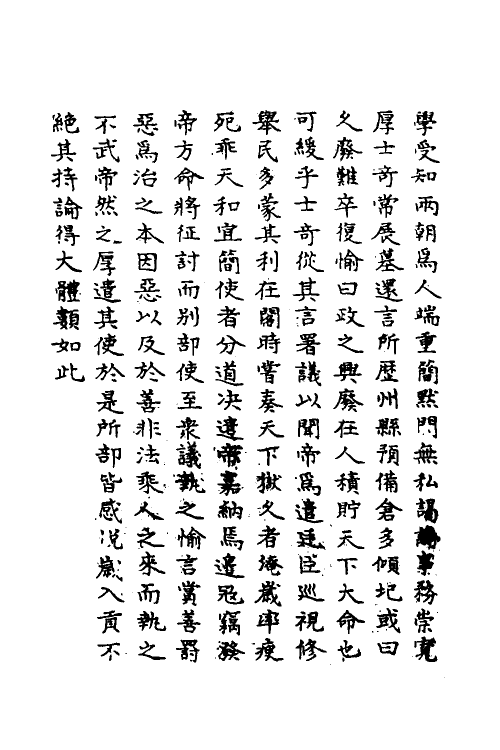 學受知兩朝爲人端重簡默門無私謁論事務崇寬
厚士奇常展墓還言所歷州縣預備倉多傾圮或曰
久廢難卒復愉曰政之興廢在人積貯天下大命也
可緩乎士奇從其言署議以聞帝爲遣廷臣巡視修
舉民多蒙其利在閣時嘗奏天下獄久者淹歲率瘐
死乖天和宜簡使者分道决遣帝嘉納焉邊冦竊發
帝方命將征討而别部使至衆議執之愉言賞善罰
惡爲治之本因惡以及於善非法乘人之來而執之
不武帝然之厚遣其使於是所部皆感况歲入貢不
絶其持論得大體類如此